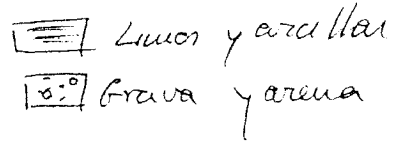 Limos y arcillas
Grava y arena